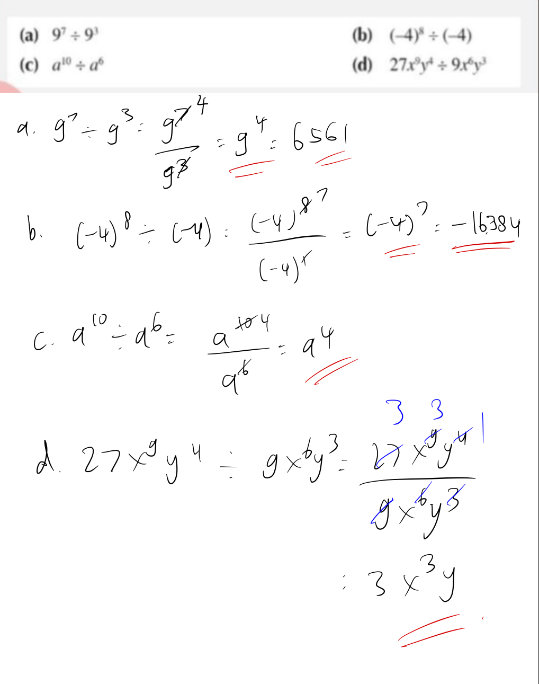 (a) 9⁷ ÷ 9³ (b) (−4)⁸ ÷ (−4)
(c) a¹⁰ ÷ a⁶ (d) 27x⁹y⁴ ÷ 9x⁶y³
a. 9⁷ ÷ 9³ = 9⁷ ⁴ / 9³ = 9⁴ = 6561
b. (-4)⁸ ÷ (-4) = (-4)⁸ ⁷ / (-4)¹ = (-4)⁷ = -16384
c. a¹⁰ ÷ a⁶ = a¹⁰ ⁴ / a⁶ = a⁴
3 3
d. 27x⁹y⁴ ÷ 9x⁶y³ = 27x⁹y⁴ 1 / 9x⁶y³
= 3x³y